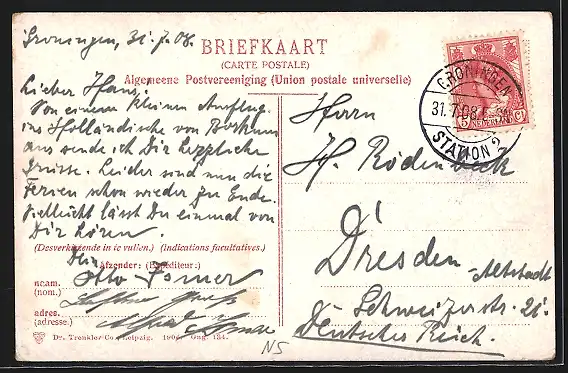 Groningen, 31.7.08.
BRIEFKAART
(CARTE POSTALE)
Algemeene Postvereeniging (Union postale universelle)
GRONINGEN
31.7.08
STATION 2
NEDERLAND
Lieber Hans!
Von einem kleinen Ausflug
ins Holländische von Borkum
aus sende ich Dir herzliche
Grüsse. Leider sind nun die
Ferien schon wieder zu Ende.
Vielleicht lässt Du einmal von
Dir hören.
(Desverkiezende in te vullen.) (Indications facultatives.)
Dein
Afzender: (Expéditeur:)
Otto
naam.
(nom.)
adres.
(adresse.)
Alfred
Dr. Trenkler Co., Leipzig. 1906. Gng. 134.
NS
Herrn
H. Rödenbeck
Dresden
-Altstadt
Schweizerstr. 21.
Deutsches Reich.